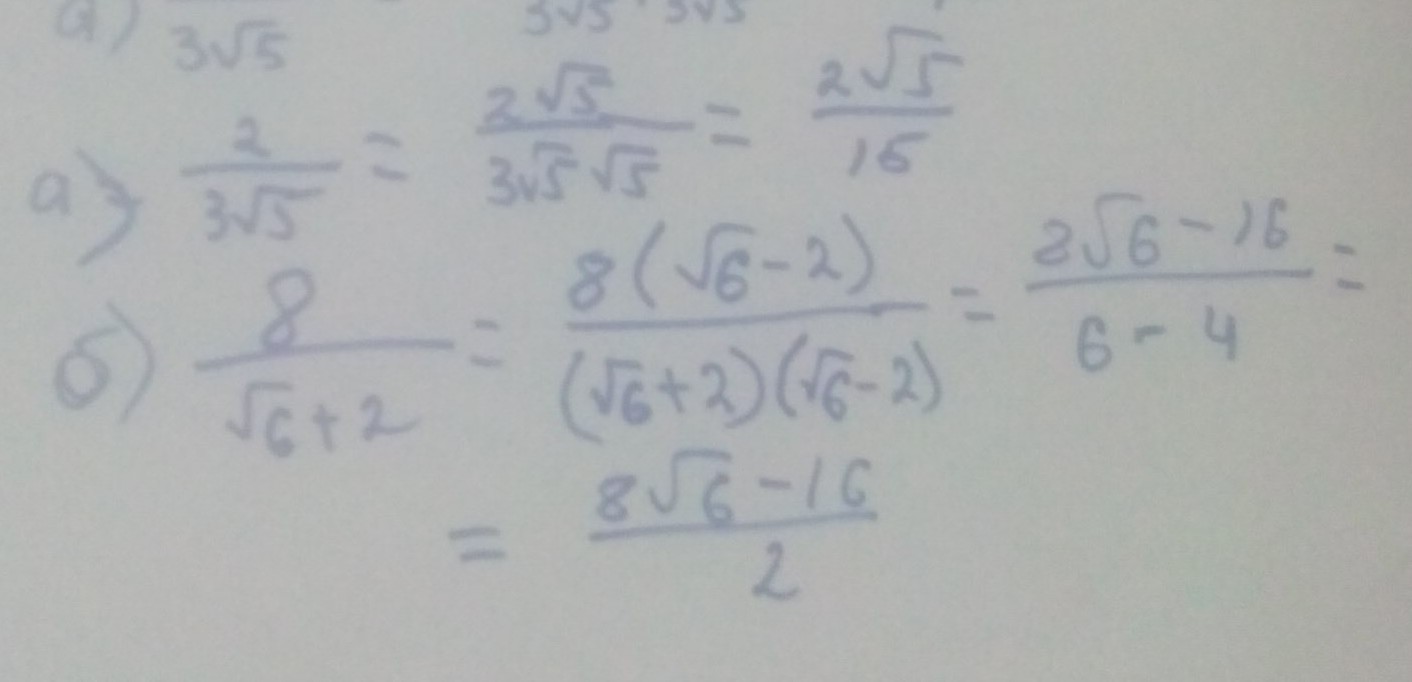 а) 3√5 3√5 · 3√5
а) 2/(3√5) = 2√5/(3√5 √5) = 2√5/15
б) 8/(√6+2) = 8(√6-2)/((√6+2)(√6-2)) = (8√6-16)/(6-4) =
= (8√6-16)/2